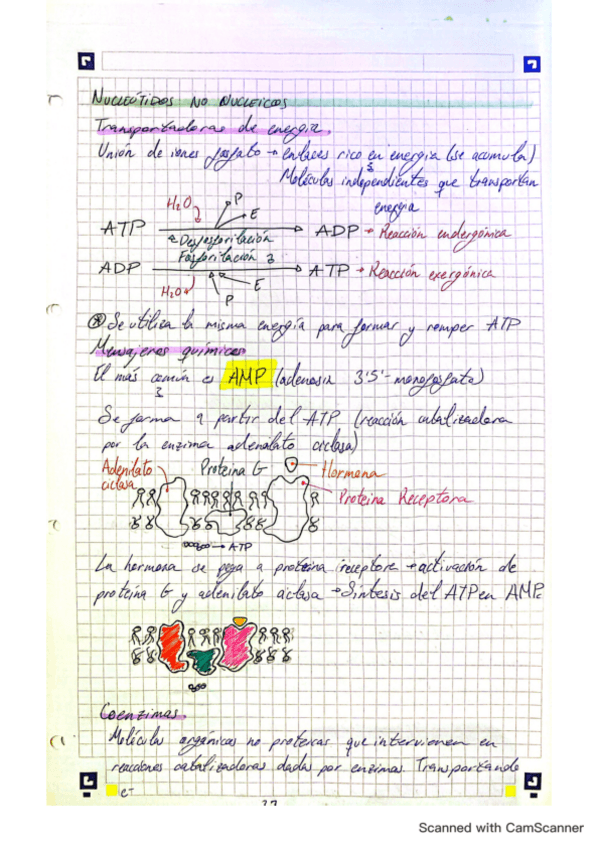 NUCLEÓTIDOS NO NUCLEICOS
Transportadoras de energía.
Unión de iones fosfato → enlaces rico en energía (se acumula)
Moléculas independientes que transportan
energía
H₂O P
E
ATP → ADP → Reacción endergónica
Desfosforilación
Fosforilación
ADP → ATP → Reacción exergónica
H₂O E
P
Se utiliza la misma energía para formar y romper ATP
Mensajeros químicos
El más común es AMP (adenosin 3'5'-monofosfato)
Se forma a partir del ATP (reacción catalizadora
por la enzima adenalato ciclasa)
Adenilato Proteína G Hormona
ciclasa
Proteína Receptora
→ ATP
La hormona se pega a proteína receptora → activación de
proteína G y adenilato ciclasa → Síntesis del ATP en AMP
Coenzimas.
Molécula orgánicas no proteicas que intervienen en
reacciones catalizadoras dadas por enzimas. Transportando
e⁻
Scanned with CamScanner